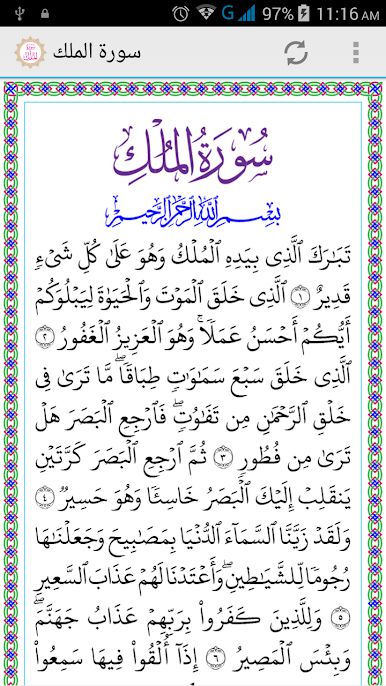 G 97% 11:16 AM
سورة الملك
سُورَةُ الْمُلْكِ
بِسْمِ ٱللَّهِ ٱلرَّحْمَٰنِ ٱلرَّحِيمِ
تَبَٰرَكَ ٱلَّذِى بِيَدِهِ ٱلْمُلْكُ وَهُوَ عَلَىٰ كُلِّ شَىْءٍ
قَدِيرٌ ١ ٱلَّذِى خَلَقَ ٱلْمَوْتَ وَٱلْحَيَوٰةَ لِيَبْلُوَكُمْ
أَيُّكُمْ أَحْسَنُ عَمَلًا ۚ وَهُوَ ٱلْعَزِيزُ ٱلْغَفُورُ ٢
ٱلَّذِى خَلَقَ سَبْعَ سَمَٰوَٰتٍ طِبَاقًا ۖ مَّا تَرَىٰ فِى
خَلْقِ ٱلرَّحْمَٰنِ مِن تَفَٰوُتٍ ۖ فَٱرْجِعِ ٱلْبَصَرَ هَلْ
تَرَىٰ مِن فُطُورٍ ٣ ثُمَّ ٱرْجِعِ ٱلْبَصَرَ كَرَّتَيْنِ
يَنقَلِبْ إِلَيْكَ ٱلْبَصَرُ خَاسِئًا وَهُوَ حَسِيرٌ ٤
وَلَقَدْ زَيَّنَّا ٱلسَّمَآءَ ٱلدُّنْيَا بِمَصَٰبِيحَ وَجَعَلْنَٰهَا
رُجُومًا لِّلشَّيَٰطِينِ ۖ وَأَعْتَدْنَا لَهُمْ عَذَابَ ٱلسَّعِيرِ
٥ وَلِلَّذِينَ كَفَرُوا۟ بِرَبِّهِمْ عَذَابُ جَهَنَّمَ ۖ
وَبِئْسَ ٱلْمَصِيرُ ٦ إِذَآ أُلْقُوا۟ فِيهَا سَمِعُوا۟